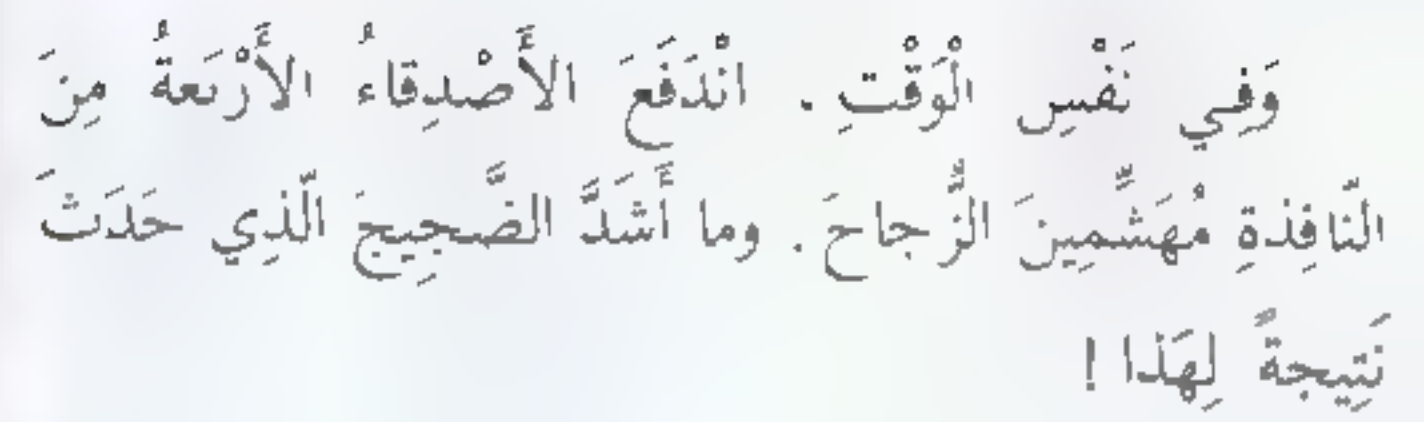 وَفِي نَفْسِ الْوَقْتِ. انْدَفَعَ الأَصْدِقاءُ الأَرْبَعةُ مِنَ
النّافِذةِ مُهَشِّمِينَ الزُّجاجَ. وما أَشَدَّ الضَّجِيجَ الّذِي حَدَثَ
نَتِيجةً لِهَذا!